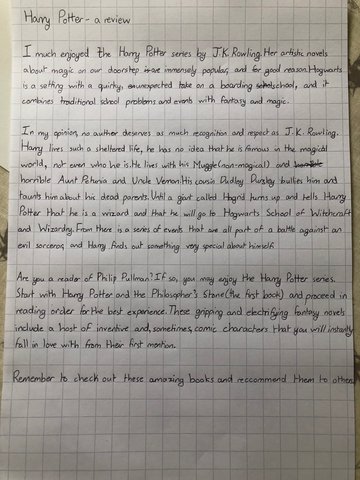 Harry Potter - a review
I much enjoyed the Harry Potter series by J.K. Rowling. Her artistic novels
about magic on our doorstep are immensely popular, and for good reason. Hogwarts
is a setting with a quirky, unexpected take on a boarding school, and it
combines traditional school problems and events with fantasy and magic.
In my opinion, no author deserves as much recognition and respect as J.K. Rowling.
Harry lives such a sheltered life, he has no idea that he is famous in the magical
world, not even who he is. He lives with his Muggle (non-magical) and
horrible Aunt Petunia and Uncle Vernon. His cousin Dudley Dursley bullies him and
taunts him about his dead parents. Until a giant called Hagrid turns up and tells Harry
Potter that he is a wizard and that he will go to Hogwarts School of Witchcraft
and Wizardry. From there is a series of events that are all part of a battle against an
evil sorceror, and Harry finds out something very special about himself.
Are you a reader of Philip Pullman? If so, you may enjoy the Harry Potter series.
Start with Harry Potter and the Philosopher's Stone (the first book) and proceed in
reading order for the best experience. These gripping and electrifying fantasy novels
include a host of inventive and, sometimes, comic characters that you will instantly
fall in love with from their first mention.
Remember to check out these amazing books and reccommend them to others